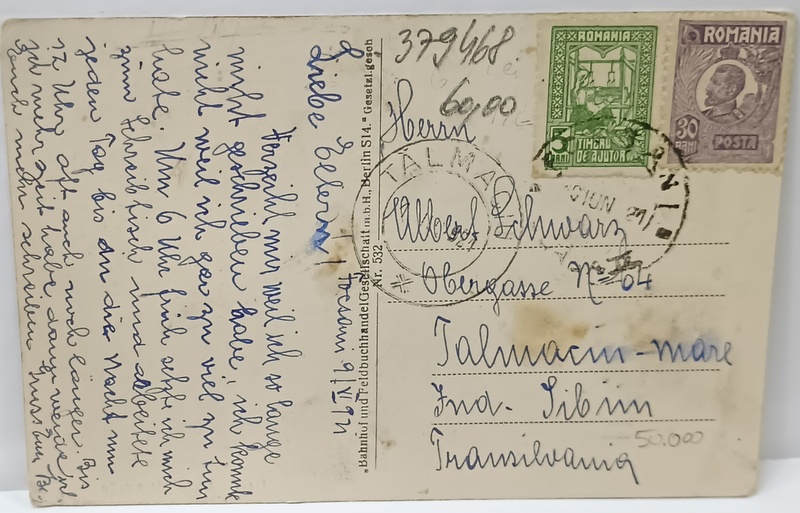 Liebe Eltern!
Focsani 9/IV 921
Verzeiht mir weil ich so lange
nicht geschrieben habe, ich konnte
nicht weil ich gar zu viel zu tun
habe. Um 6 Uhr früh setze ich mich
zum Schreibtisch und arbeite
jeden Tag bis in die Nacht um
12 Uhr oft auch noch länger. Bis
ich mehr Zeit habe, dann werde ich
Euch mehr schreiben.
„Bahnhof und Feldbuchhandel Gesellschaft m.b.H., Berlin S14." Gesetzl. gesch
Nr. 532
379468
60,00
ROMANIA
TIMBRU
DE AJUTOR
ROMANIA
30
BANI
POSTA
TALMA
921
Herrn
Albert Schwarz
Obergasse N 64
Talmaciu-mare
Jud. Sibiiu
Transilvania
50.000